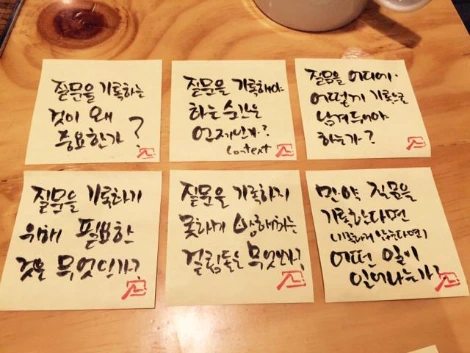 질문을 기록하는
것이 왜
중요한가?
질문을 기록해야
하는 순간은
언제인가?
context
질문을 어디에·
어떻게 기록을
남겨둬야
하는가?
질문을 기록하기
위해 필요한
것은 무엇인가?
질문을 기록하지
못하게 방해하는
걸림돌은 무엇인가?
만약 질문을
기록한다면
어떤 일이
일어나는가?